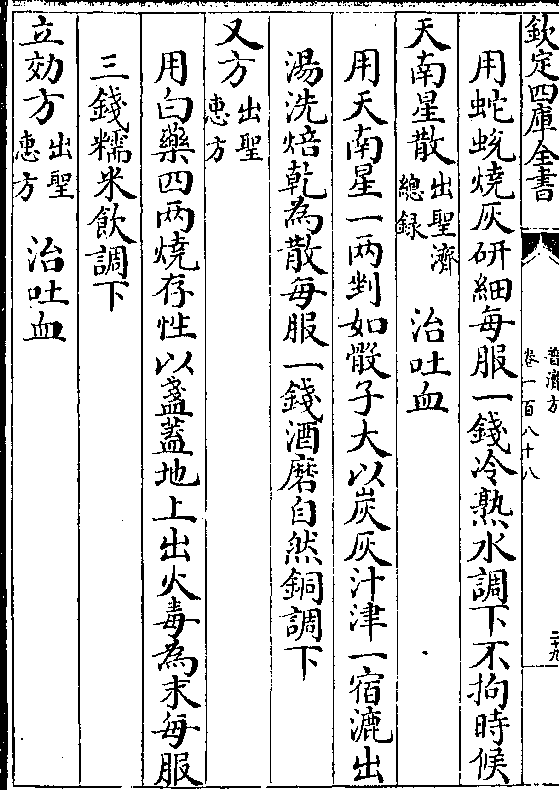 欽定四庫全書
普濟方
卷一百八十八
二十九
用蛇蛻燒灰研細每服一錢冷熟水調下不拘時候
天南星散出聖濟總録　治吐血
用天南星一两剉如骰子大以炭灰汁津一宿漉出
湯洗焙乾為散每服一錢酒磨自然銅調下
又方出聖惠方
用白藥四两燒存性以盞蓋地上出火毒為末每服
三錢糯米飲調下
立効方出聖惠方　治吐血